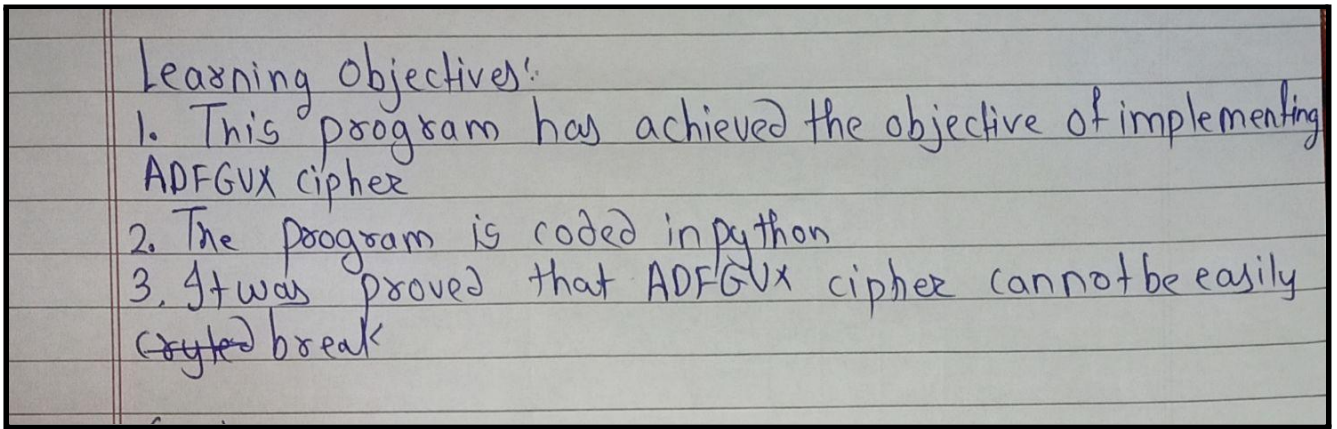 Learning Objectives:
1. This program has achieved the objective of implementing
ADFGVX cipher
2. The program is coded in python
3. It was proved that ADFGVX cipher cannot be easily
break